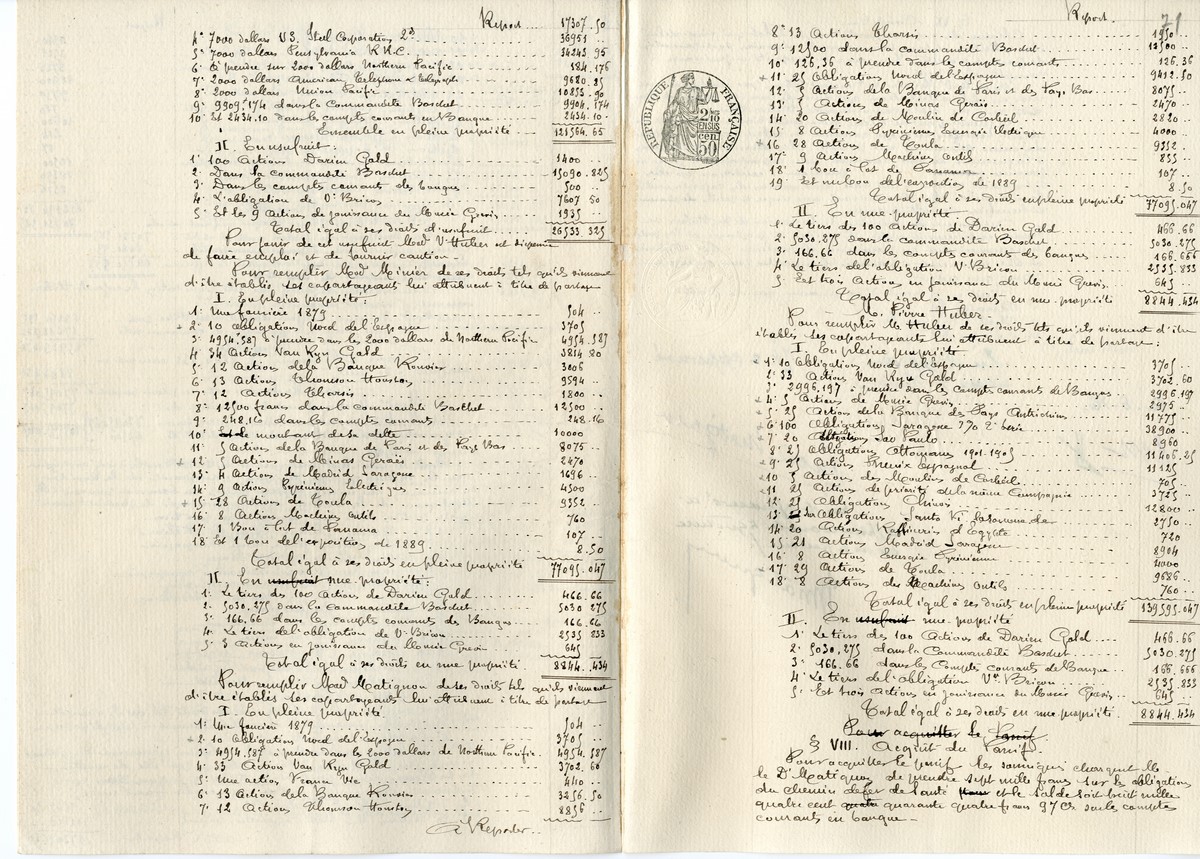 Report 17307.50
4° 7000 dollars U.S. Steel Corporation 2d 36951
5° 7000 dollars Pensylvania R.R.C. 34243 95
6° à prendre sur 2000 dollars Northern Pacific 184.176
7° 2000 dollars American Telephone & Telegraph 9620.25
8° 2000 dollars Union Pacific 10853.90
9° 9909.174 dans la Commandite Baschet 9904.174
10° Et 2434.10 dans les comptes courants en Banque 2434.10
Ensemble en pleine propriété 121564.65
II. En usufruit:
1° 100 Actions Darien Gold 1400
2° Dans la commandite Baschet 15090.825
3° Dans les comptes courants des banques 500
4° L'obligation de Vve Bricou 7607 50
5° Et les 9 Actions de jouissance du Monie Gevis 1935
Total égal à ses droits d'usufruit 26533 325
Pour jouir de cet usufruit Mad Vve Huber est dispensée
de faire emploi et de fournir caution.
Pour remplir Mad Minier de ses droits tels qu'ils viennent
d'être établis les copartageants lui attribuent à titre de partage
I. En pleine propriété:
1° Une Janvière 1879 504
2° 10 obligations Nord de l'Espagne 3705
3° 4954.587 à prendre dans les 2000 dollars de Northern Pacific 4954.587
4° 34 Actions Van Ryn Gold 3814 80
5° 12 Actions de la Banque Rouvier 3006
6° 13 Actions Thomson Houston 9594
7° 12 Actions Tharsis 1800
8° 12500 francs dans la commandite Baschet 12500
9° 248.16 dans les comptes courants 248.16
10° le montant de sa dette 10000
11° 5 Actions de la Banque de Paris et des Pays Bas 8075
12° 5 Actions de Minas Geraës 2470
13° 4 Actions de Madrid Saragosse 1696
14° 9 Actions Pyrénéennes Electriques 4500
15° 28 Actions de Toula 9352
16° 8 Actions Machines outils 760
17° 1 Bon à lot de Panama 107
18° Et 1 bon de l'exposition de 1889 8.50
Total égal à ses droits en pleine propriété 77095.047
II. En usufruit nue propriété:
1° Le tiers des 100 Actions de Darien Gold 466.66
2° 5030.275 dans la commandite Baschet 5030 275
3° 166.66 dans les comptes courants des Banques 166.66
4° Le tiers de l'obligation de Vve Bricou 2535 833
5° 3 Actions en jouissance du Monie Gevis 645
Total égal à ses droits en nue propriété. 8844.434
Pour remplir Mad Matignon de ses droits tels qu'ils viennent
d'être établis les copartageants lui attribuent à titre de partage
I. En pleine propriété.
1° Une Janvier 1879 504
2° 10 Obligation Nord de l'Espagne 3705
3° 4954.587 à prendre dans les 2000 dollars de Northern Pacific 4954.587
4° 33 Action Van Ryn Gold 3702.60
5° Une action 440
6° 13 Actions de la Banque Rouvier 3256.50
7° 12 Actions Thomson Houston 8856
à Reporter
75
RÉPUBLIQUE FRANÇAISE
2/10 EN SUS
50 cen
Report.
8° 13 Actions Tharsis 1950
9° 12500 dans la commandite Baschet 12500
10° 126.36 à prendre dans les comptes courants 126.36
11° 25 Obligations Nord de l'Espagne 9412.50
12° 5 Actions de la Banque de Paris et des Pays Bas 8075
13° 5 Actions de Minas Geraës 2470
14° 20 Actions de Moulin de Corbeil 2820
15° 8 Actions Pyrénéennes Energie électrique 4000
16° 28 Actions de Toula 9352
17° 9 Actions Machines outils 855
18° 1 bon à lot de Panama 107
19° Et un bon de l'exposition de 1889 8.50
Total égal à ses droits en pleine propriété 77095.047
II. En nue propriété.
1° Le tiers des 100 Actions de Darien Gold 466.66
2° 5030.275 dans la commandite Baschet 5030.275
3° 166.66 dans les comptes courants des banques 166.666
4° Le tiers de l'obligation Vve Bricou 2535.833
5° Et trois Actions en jouissance du Monie Gevis 645
Total égal à ses droits en nue propriété 8844.434
M. Pierre Huber.
Pour remplir M. Huber de ses droits tels qu'ils viennent d'être
établis les copartageants lui attribuent à titre de partage:
I. En pleine propriété
1° 10 Obligations Nord de l'Espagne 3705
2° 33 Actions Van Ryn Gold 3702.60
3° 2996.197 à prendre dans les comptes courants de Banques 2996.197
4° 5 Actions de Monie Gevis 2975
5° 25 Actions de la Banque des Pays Autrichiens 11775
6° 100 Obligations Saragosse 3% 2e Série 38900
7° 20 Obligations Sao Paulo 8960
8° 25 Obligations Ottomanes 1901.1905 11406.25
9° 25 Actions Espagnol 11125
10° 5 Actions des Moulins de Corbeil 705
11° 25 Actions de priorité de la même Compagnie 3725
12° 25 Obligations Chinois 12800
13° Obligations Santa Fé 2750
14° 20 Actions Raffinerie d'Egypte 720
15° 21 Actions Madrid Saragosse 8904
16° 8 Actions Energie Pyrénéenne 4000
17° 29 Actions de Toula 9686
18° 8 Actions des Machines outils 760
Total égal à ses droits en pleine propriété 139595.047
II. En usufruit nue propriété
1° Le tiers des 100 Actions de Darien Gold 466.66
2° 5030.275 dans la Commandite Baschet 5030.275
3° 166.66 dans les Comptes courants de Banque 166.666
4° Le tiers de l'obligation Vve Bricou 2535.833
5° Et trois Actions en jouissance du Monie Gevis 645
Total égal à ses droits en nue propriété. 8844.434
Pour acquitter le passif
§ VIII. Acquit du Passif.
Pour acquitter le passif les soussignés chargent M.
le Dr Matignon de prendre sept mille francs sur les obligations
du chemin de fer de Santa et le solde soit huit mille
quatre cent quarante quatre francs 97 c. sur les comptes
courants en banque.